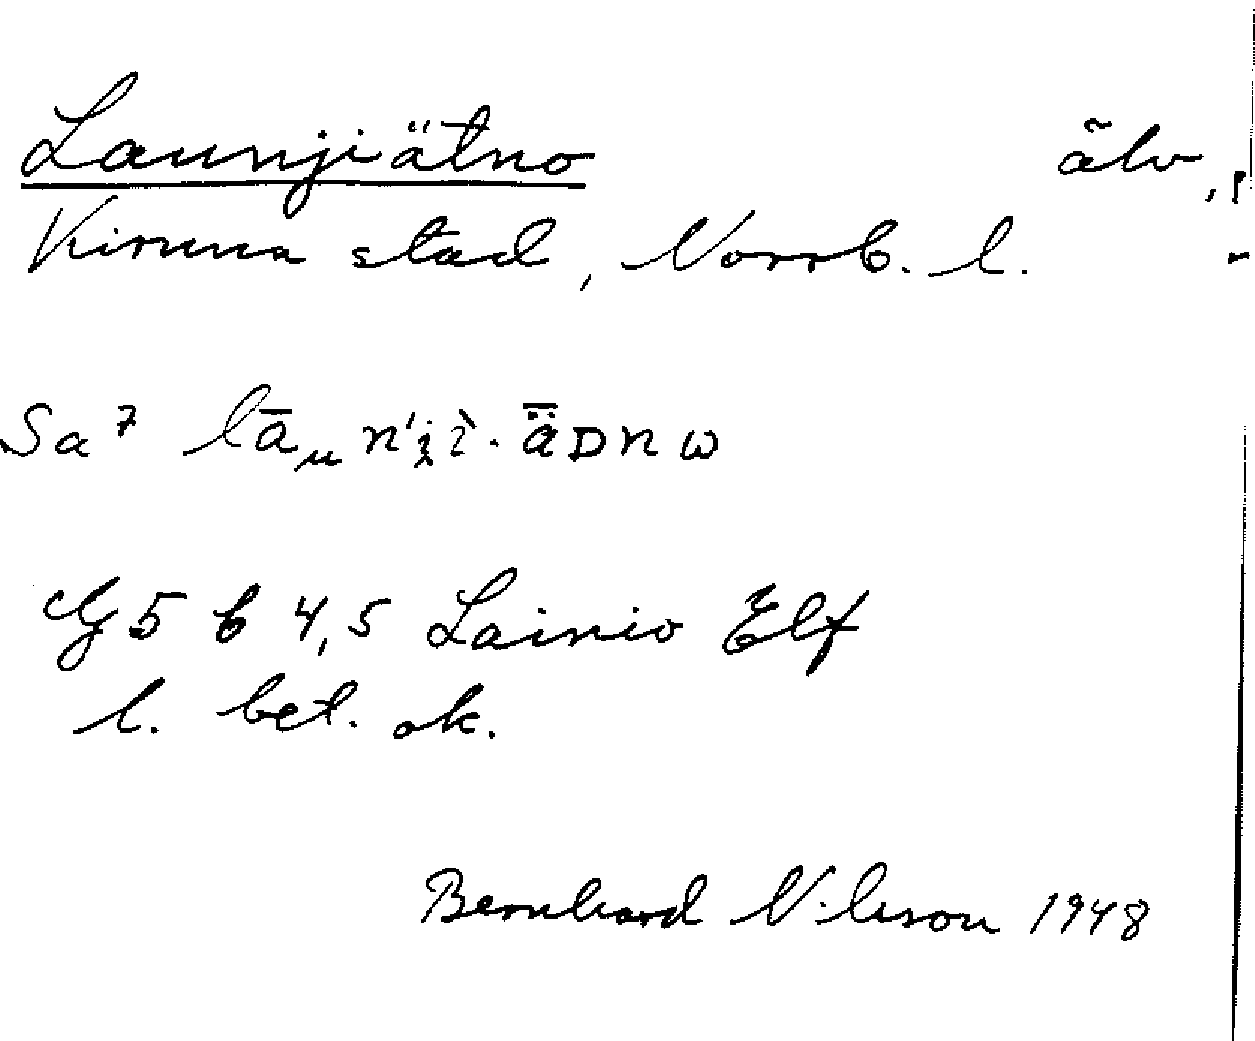 Launjiätno älv
Kiruna stad, Norrb. l.
Sa⁷
G 5 b 4,5 Lainio Elf
l. bet. ok.
Bernhard Nilsson 1948